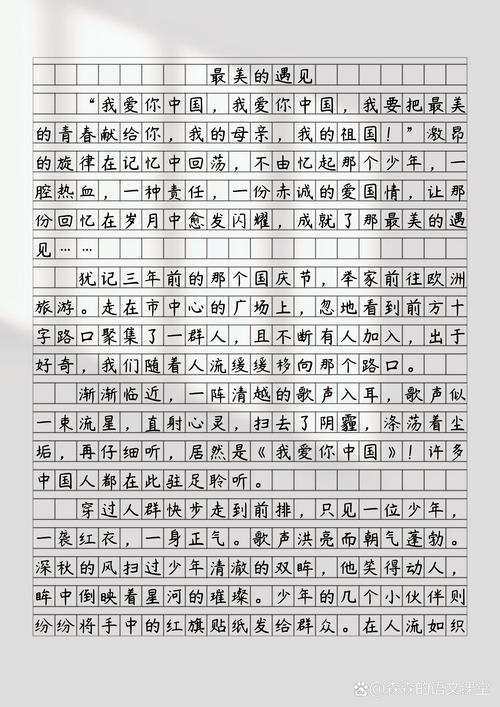 最美的遇见
“我爱你中国，我爱你中国，我要把最美
的青春献给你，我的母亲，我的祖国！”激昂
的旋律在记忆中回荡，不由忆起那个少年，一
腔热血，一种责任，一份赤诚的爱国情，让那
份回忆在岁月中愈发闪耀，成就了那最美的遇
见……
犹记三年前的那个国庆节，举家前往欧洲
旅游。走在市中心的广场上，忽地看到前方十
字路口聚集了一群人，且不断有人加入，出于
好奇，我们随着人流缓缓移向那个路口。
渐渐临近，一阵清越的歌声入耳，歌声似
一束流星，直射心灵，扫去了阴霾，涤荡着尘
垢，再仔细听，居然是《我爱你中国》！许多
中国人都在此驻足聆听。
穿过人群快步走到前排，只见一位少年，
一袭红衣，一身正气。歌声洪亮而朝气蓬勃。
深秋的风扫过少年清澈的双眸，他笑得动人，
眸中倒映着星河的璀璨。少年的几个小伙伴则
纷纷将手中的红旗贴纸发给群众。在人流如织
百家号@森森的语文课堂